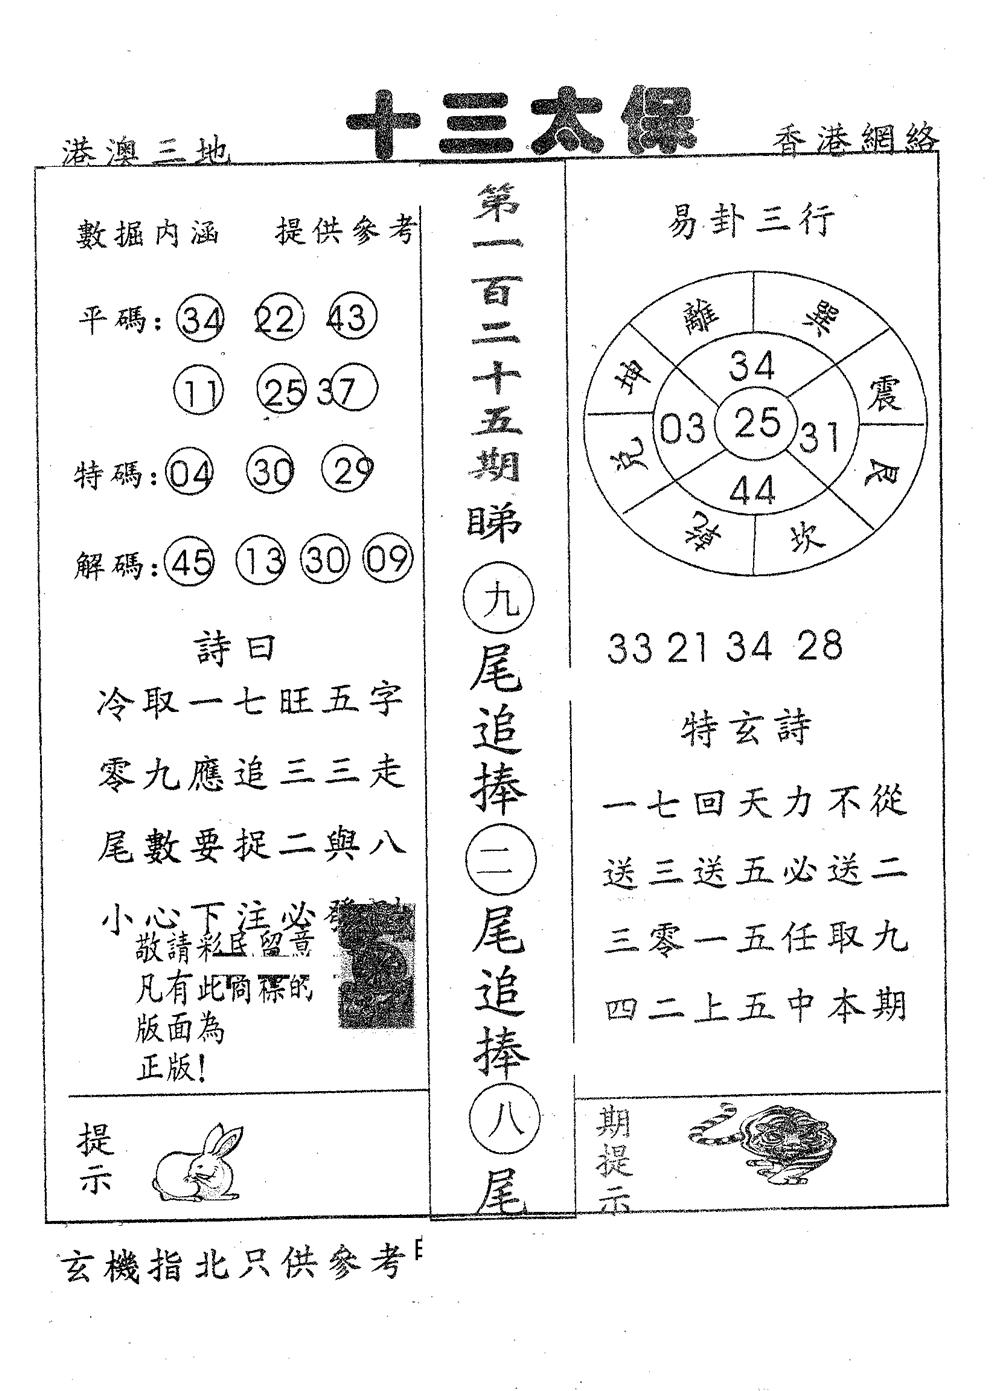 十三太保
港澳三地
香港網絡
數掘內涵 提供參考
平碼: 34 22 43
11 25 37
特碼: 04 30 29
解碼: 45 13 30 09
詩曰
冷取一七旺五字
零九應追三三走
尾數要捉二與八
小心下注必發
敬請彩民留意
凡有此商標的
版面為
正版!
提示
第一百二十五期睇九尾追捧二尾追捧八尾
易卦三行
離 巽
坤 34 震
兌 03 25 31 艮
44
乾 坎
33 21 34 28
特玄詩
一七回天力不從
送三送五必送二
三零一五任取九
四二上五中本期
期提示
玄機指北只供參考